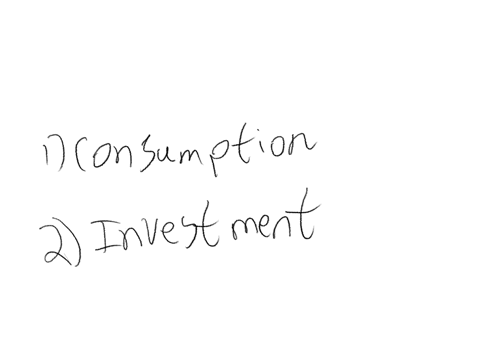 1) Consumption
2) Investment